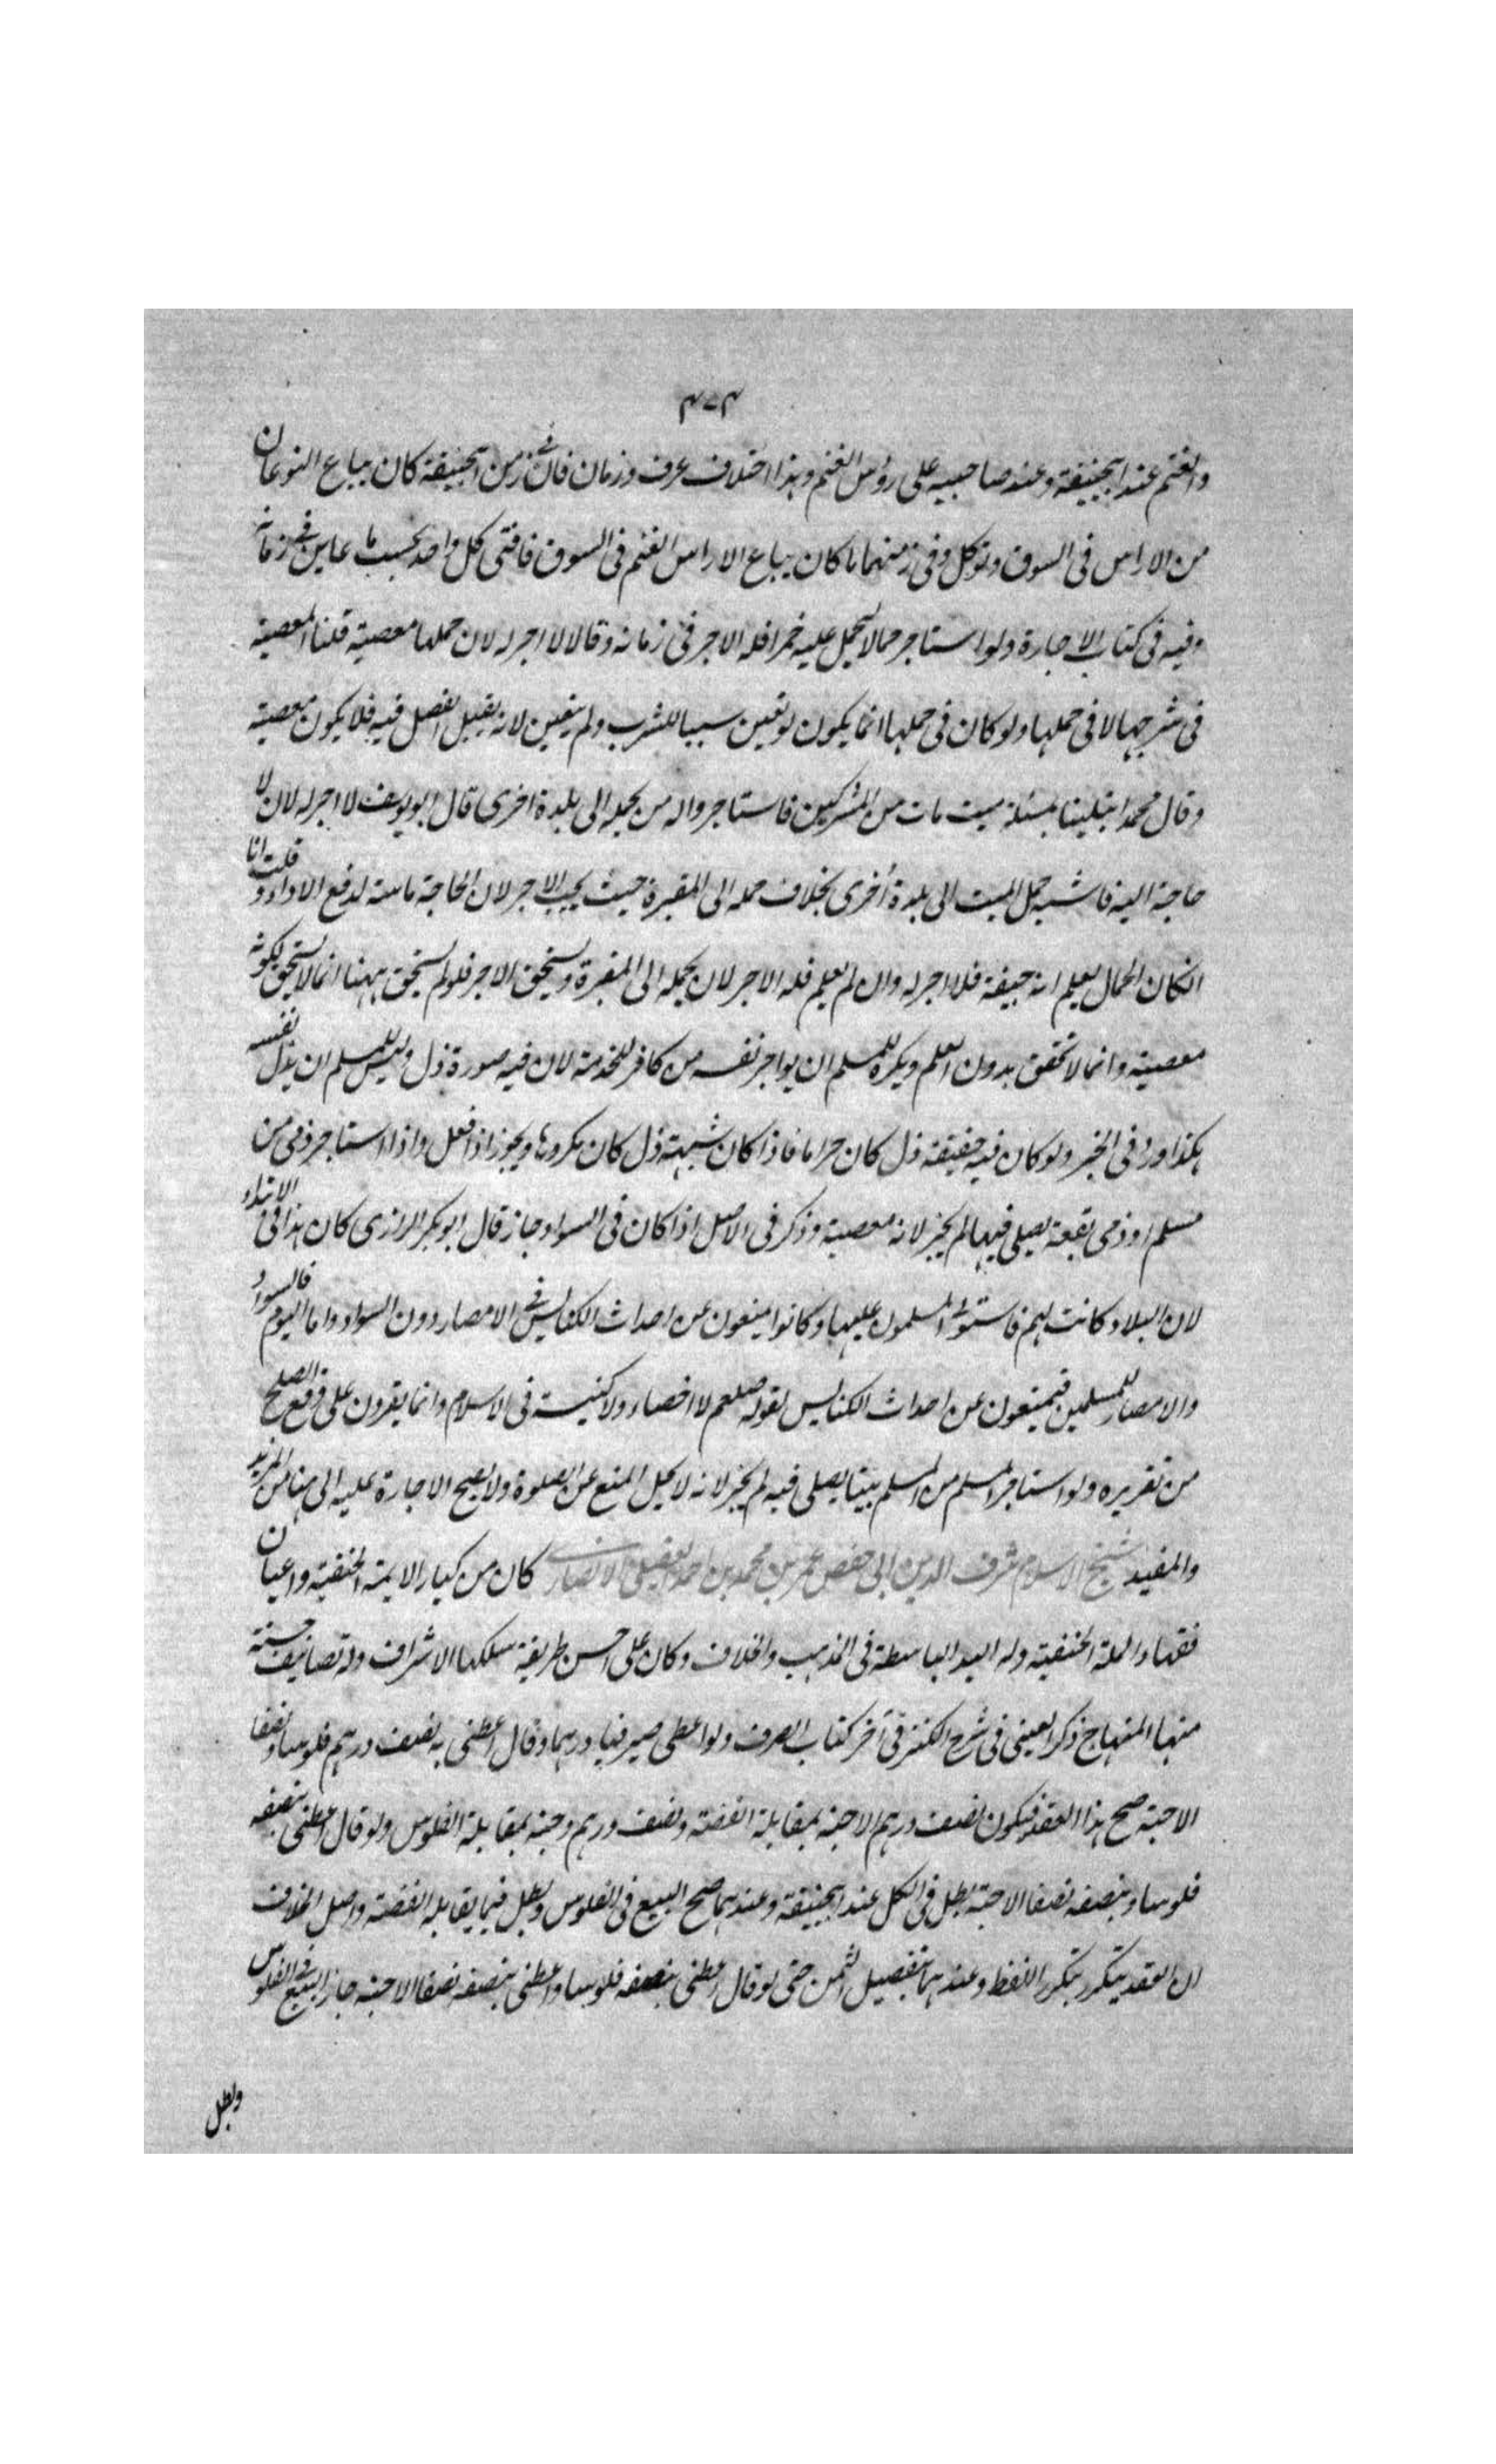 ٤٧٤
والغنم عند ابیحنیفة وعند صاحبیه علی رؤس الغنم وهذا اختلاف عرف وزمان فان فی زمن ابیحنیفة کان یباع النوعان
من الاراس فی السوق وتوکل وفی زمنهما ما کان یباع الا راس الغنم فی السوق فافتی کل واحد بحسب ما عاین فی زمانه
وفیه فی کتاب الاجارة ولو استاجر حمالا لیحمل علیه خمرا فله الاجر فی زمانه وقالا لا اجر له لان حملها معصیة قلنا المعصیة
فی شربها لا فی حملها ولو کان فی حملها انما یکون لو تعین سببا للشرب ولم یتعین لانه یقبل الفصل فیه فلا یکون معصیة
وقال محمد ابتلینا بمسئلة میت مات من المشرکین فاستاجروا له من یحمله الی بلدة اخری قال ابو یوسف لا اجر له لان لا
حاجة الیه فاشبه حمل المیت الی بلدة أخری بخلاف حمله الی المقبرة حیث یجب الاجر لان الحاجة ماسة لدفع الاداء و قلت انا
انکان الحمال یعلم انه جیفة فلا اجر له وان لم یعلم فله الاجر لان یحمله الی المقبرة ویستحق الاجر فلو لم یستحق ههنا انما لا یستحق لکونه
معصیة وانما لا تحقق بدون العلم ویکره للمسلم ان یواجر نفسه من کافر للخدمة لان فیه صورة ذل ولیس للمسلم ان یذل نفسه
هکذا ورد فی الخبر ولو کان فیه حقیقة ذل کان حراما فاذا کان شبهة ذل کان مکروها ویجوز اذا فعل واذا استاجر ذمی من
مسلم او ذمی بقعة یصلی فیها لم یجز لانه معصیة وذکر فی الاصل اذا کان فی السواد جاز قال ابو بکر الرازی کان هذا فی الابتداء
لان البلاد کانت لهم فاستولی المسلمون علیها وکانوا یمنعون عن احداث الکنایس فی الامصار دون السواد واما الیوم فالسواد
والامصار للمسلمین فیمنعون عن احداث الکنایس لقوله صلعم لا اخصاء ولا کنیسة فی الاسلام وانما یقرون علی ما وقع الصلح
من تقریره ولو استاجر المسلم من المسلم بیتا یصلی فیه لم یجز لانه لا یحل المنع عن الصلوة ولا یصح الاجارة علیه الی هنا من المزید
والمفید شیخ الاسلام شرف الدین ابی حفص عمر بن محمد بن احمد العقیلی الانصاری کان من کبار الایمة الحنفیة واعیان
فقهاء الملة الحنفیة وله الید الباسطة فی المذهب والخلاف وکان علی احسن طریقة سلکها الاشراف وله تصانیف حسنة
منها المنهاج ذکر العینی فی شرح الکنز فی آخر کتاب الصرف ولو اعطی صیرفیا درهما وقال اعطنی به نصف درهم فلوسا ونصفا
الا حبة صح هذا العقد فیکون نصف درهم الا حبة بمقابلة الفضة ونصف درهم وحبة بمقابلة الفلوس ولو قال اعطنی بنصفه
فلوسا وبنصفه نصفا الا حبة بطل فی الکل عند ابیحنیفة وعندهما صح البیع فی الفلوس وبطل فیما یقابله الفضة واصل الخلاف
ان العقد یتکرر بتکرر اللفظ وعندهما بتفصیل الثمن حتی لو قال اعطنی بنصفه فلوسا واعطنی بنصفه نصفا الا حبة جاز البیع فی الفلوس
وبطل